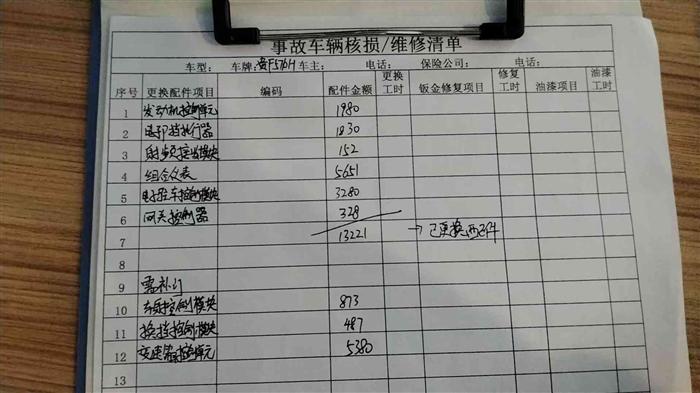 事故车辆核损/维修清单
车型： 车牌： 车主： 电话： 保险公司： 电话：
序号 更换配件项目 编码 配件金额 更换工时 钣金修复项目 修复工时 油漆项目 油漆工时
1 发动机控制单元 1980
2 电子档执行器 1830
3 射频控制模块 152
4 组合仪表 5651
5 电子驻车控制模块 3280
6 网关控制器 328
7 13221 →已更换配件
8
9 需补订
10 车身控制模块 873
11 换挡控制模块 487
12 变速箱控制单元 5380
13